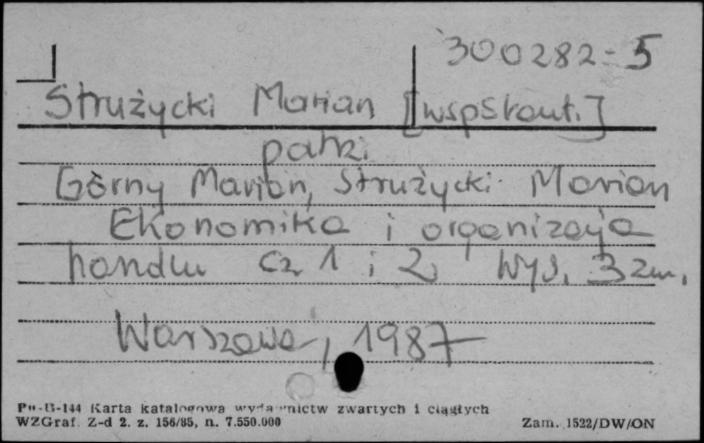 300282-5
Strużycki Marian [współaut.]
patrz:
Górny Marian, Strużycki Marian
Ekonomika i organizacja
handlu Cz. 1 i 2, Wyd. 3 zm.
Warszawa, 1987
Pu-B-144 Karta katalogowa wydawnictw zwartych i ciągłych
WZGraf. Z-d 2. z. 156/85, n. 7.550.000 Zam. 1522/DW/ON